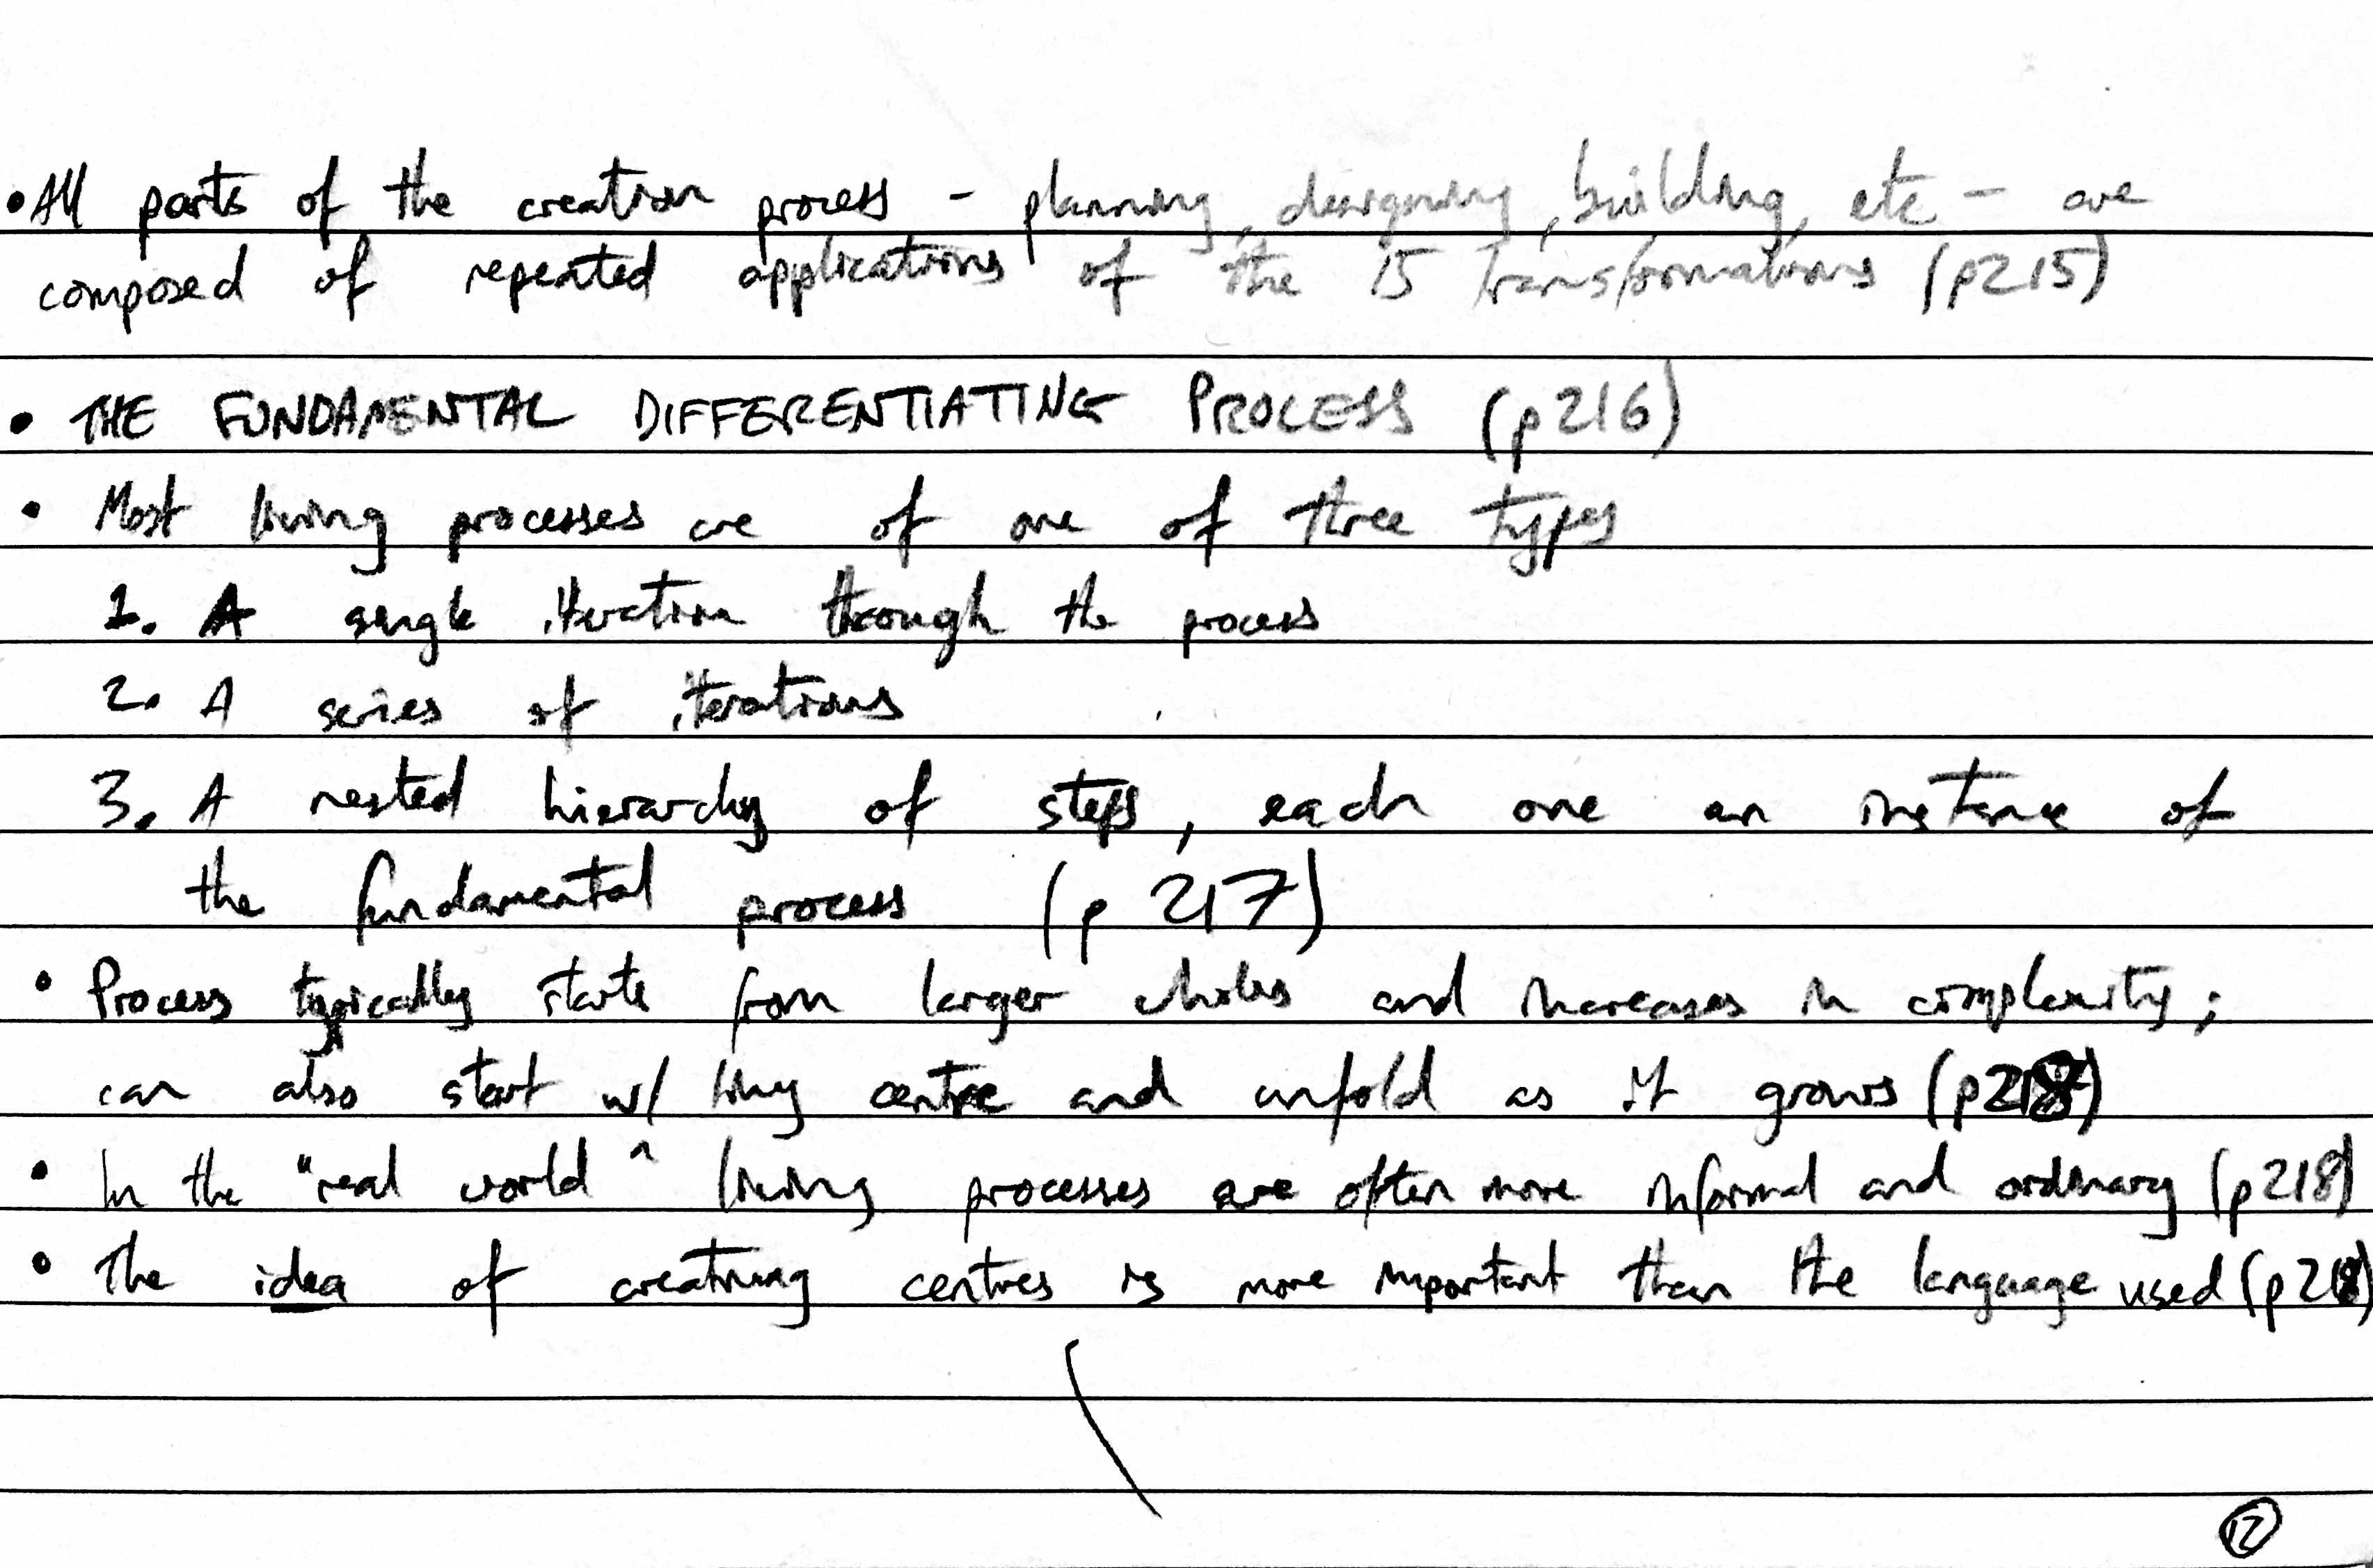 • All parts of the creation process - planning, designing, building, etc - are
composed of repeated applications of the 15 transformations (p215)
• THE FUNDAMENTAL DIFFERENTIATING PROCESS (p216)
• Most living processes are of one of three types
1. A single iteration through the process
2. A series of iterations
3. A nested hierarchy of steps, each one an instance of
the fundamental process (p 217)
• Process typically starts from larger wholes and increases in complexity;
can also start w/ tiny centre and unfold as it grows (p218)
• In the "real world" living processes are often more informal and ordinary (p218)
• The idea of creating centres is more important than the language used (p218)
12